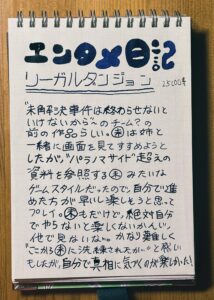 エンタメ日記
リーガルダンジョン
23.00.4
"未解決事件は終わらせないと
いけないから"〜のチーム?の
前の作品らしい。㊍は姉と
一緒に画面を見てすすめようと
したが、"パラノマサイト"超えの
資料を参照する㊍みたいな
ゲームスタイルだったので、自分で進
めた方が早いし楽しそうと思って
プレイ。㊍もだけど、絶対自分
でやらないと楽しくないかんじ。
他で見ないな〜。かなり黄金しく
"ここから㊍に洗練されたか〜"と感じ
もしたが、自分で真相に気づくのが楽しかった!